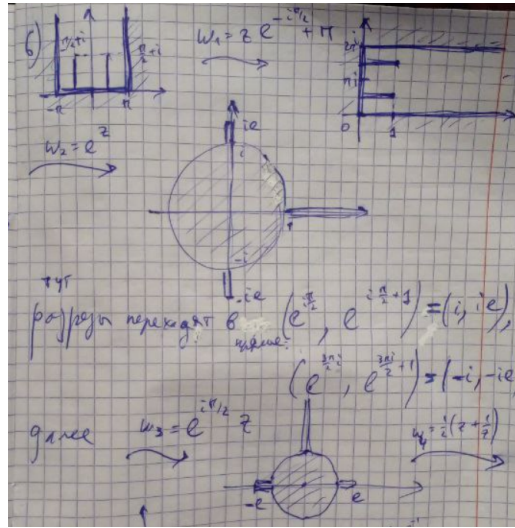 б)
π/2+i
π/2+i
-π
π
w₁ = z e^{-iπ/2} + π
2πi
πi
0
1
w₂ = e^z
ie
i
1
-i
-ie
тут
разрезы переходят в (e^{iπ/2}, e^{iπ/2+1}) = (i, ie),
(e^{3πi/2}, e^{3πi/2+1}) = (-i, -ie
далее
w₃ = e^{iπ/2} z
w₄ = 1/2 (z + 1/z)
-e
e